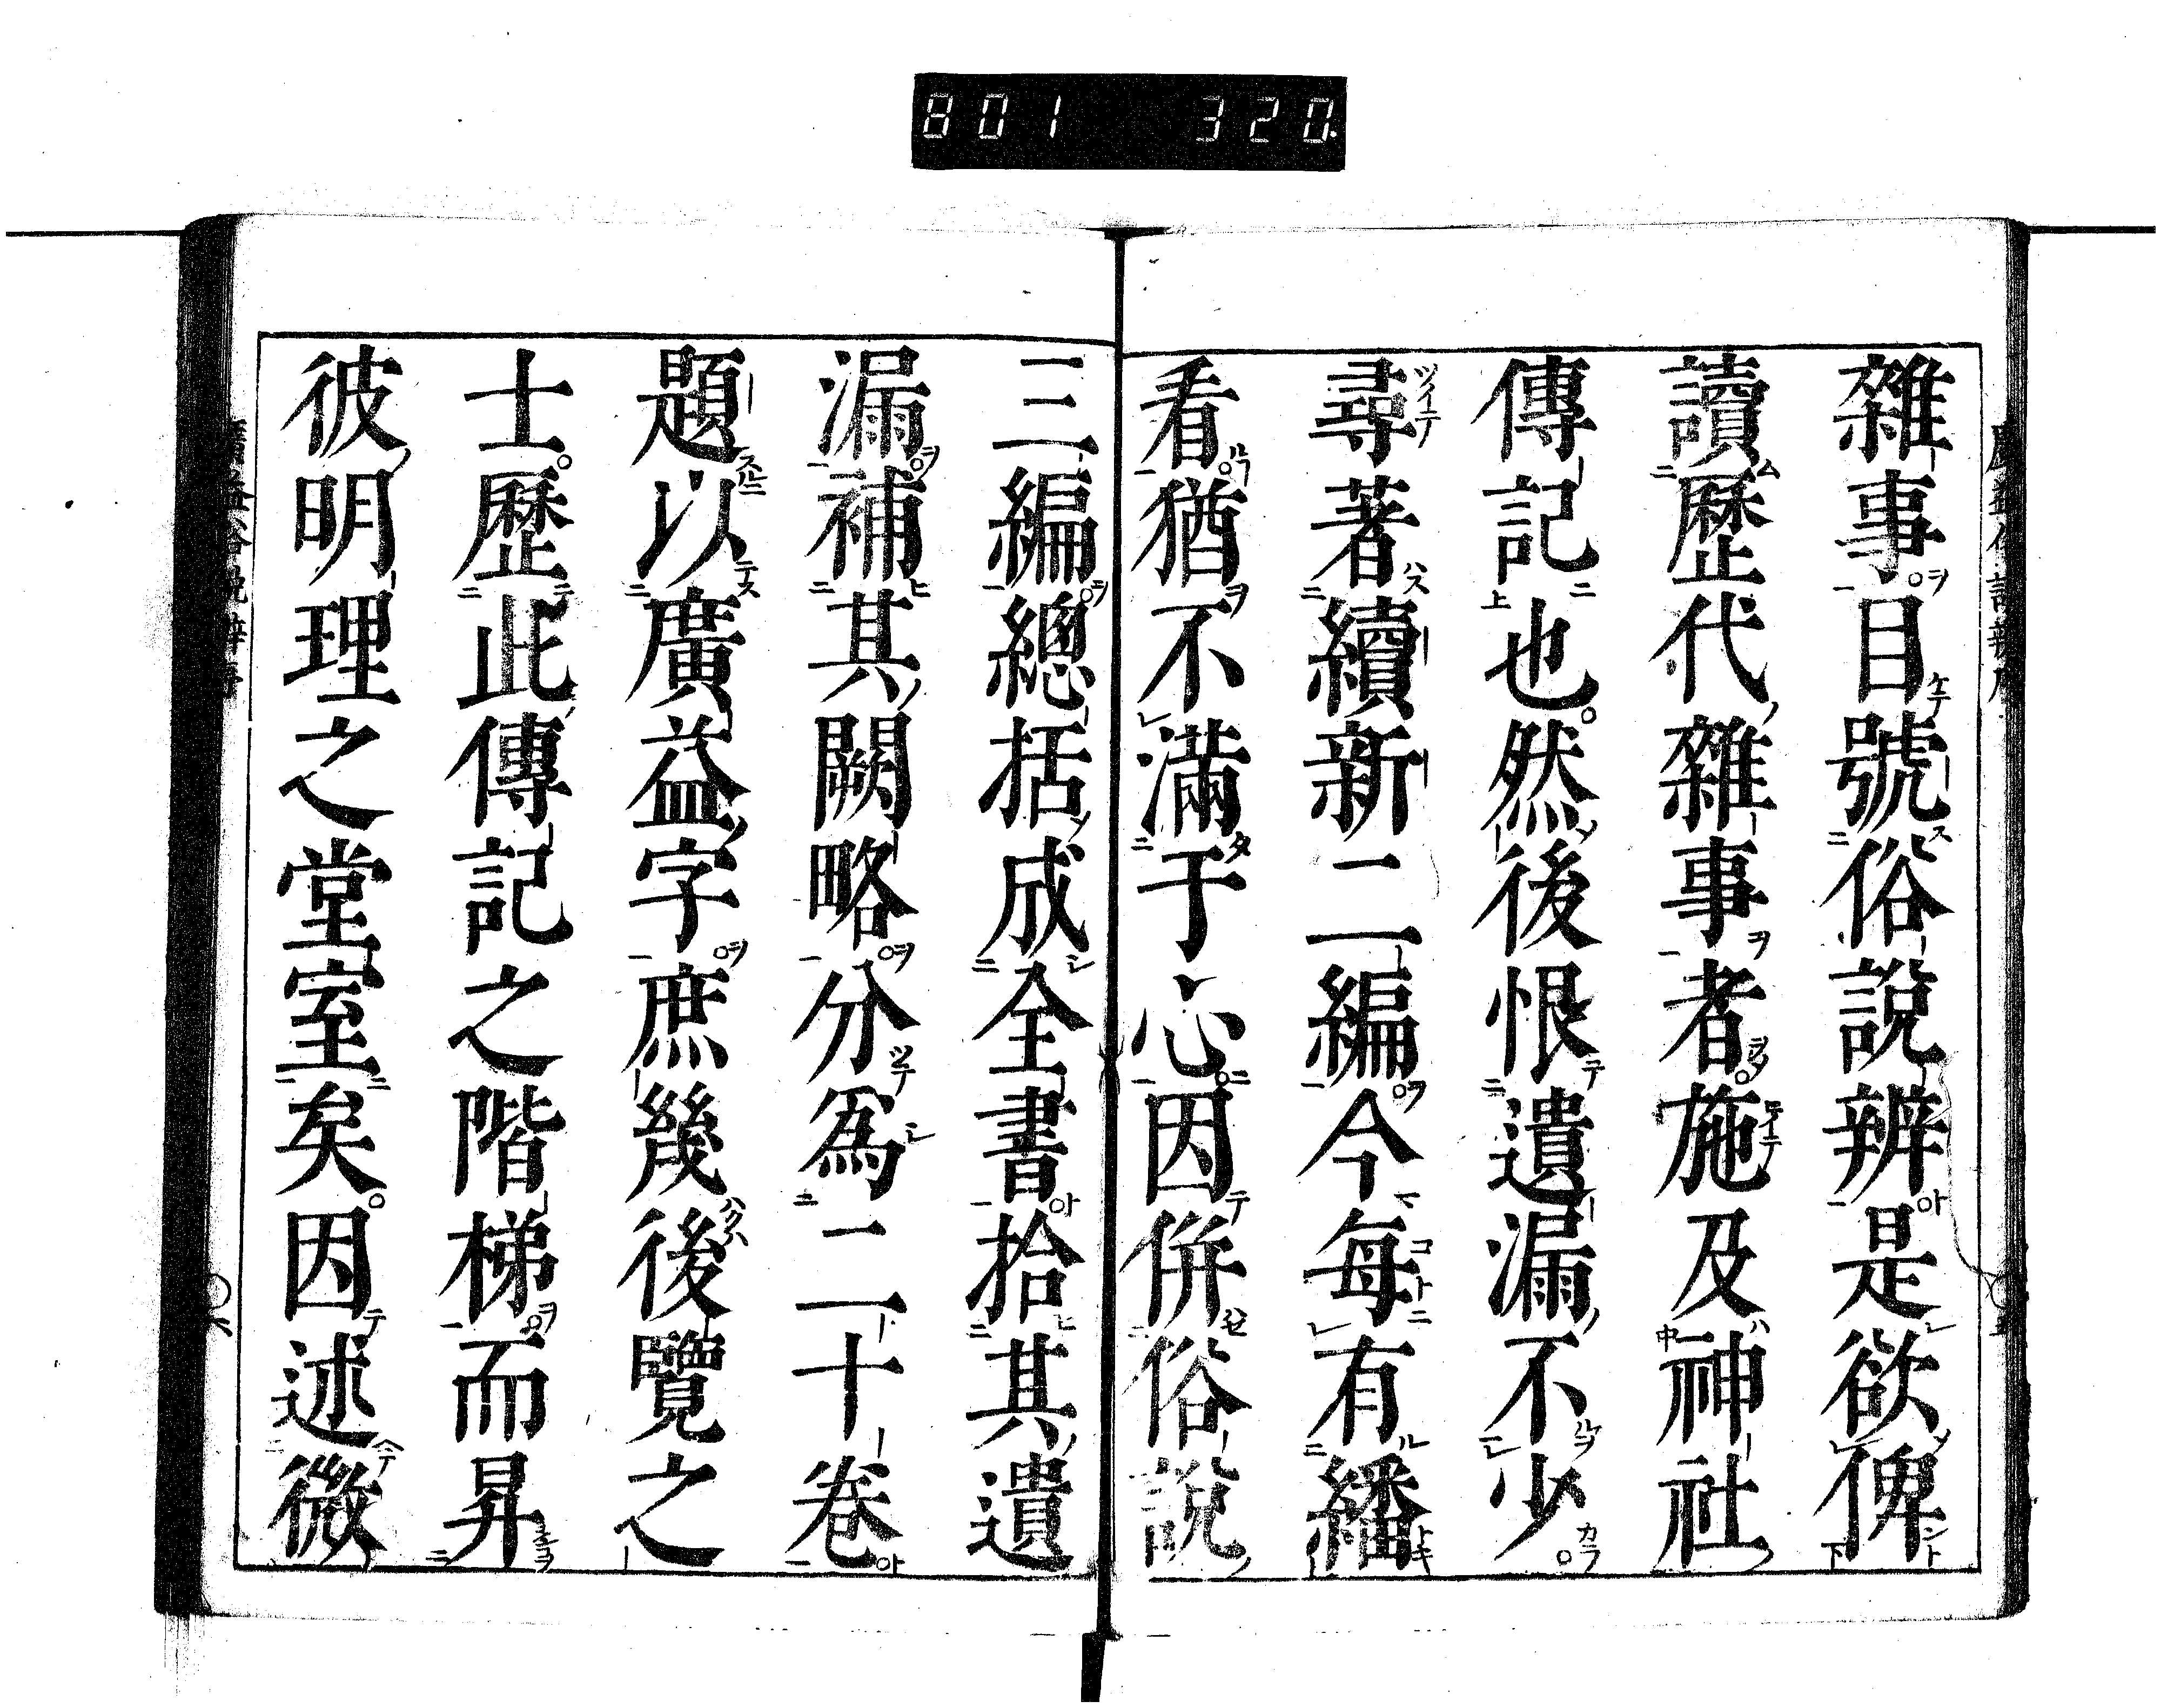 801 320.
雜事目號俗說辨是欲俾
讀歷代雜事者施及神社
傳記也然後恨遺漏不少
尋著續新二編今每有繙
看猶不滿于心因併俗說
三編總括成全書拾其遺
漏補其闕略分爲二十卷
題以廣益字庶幾後覽之
士歷此傳記之階梯而昇
彼明理之堂室矣因述微